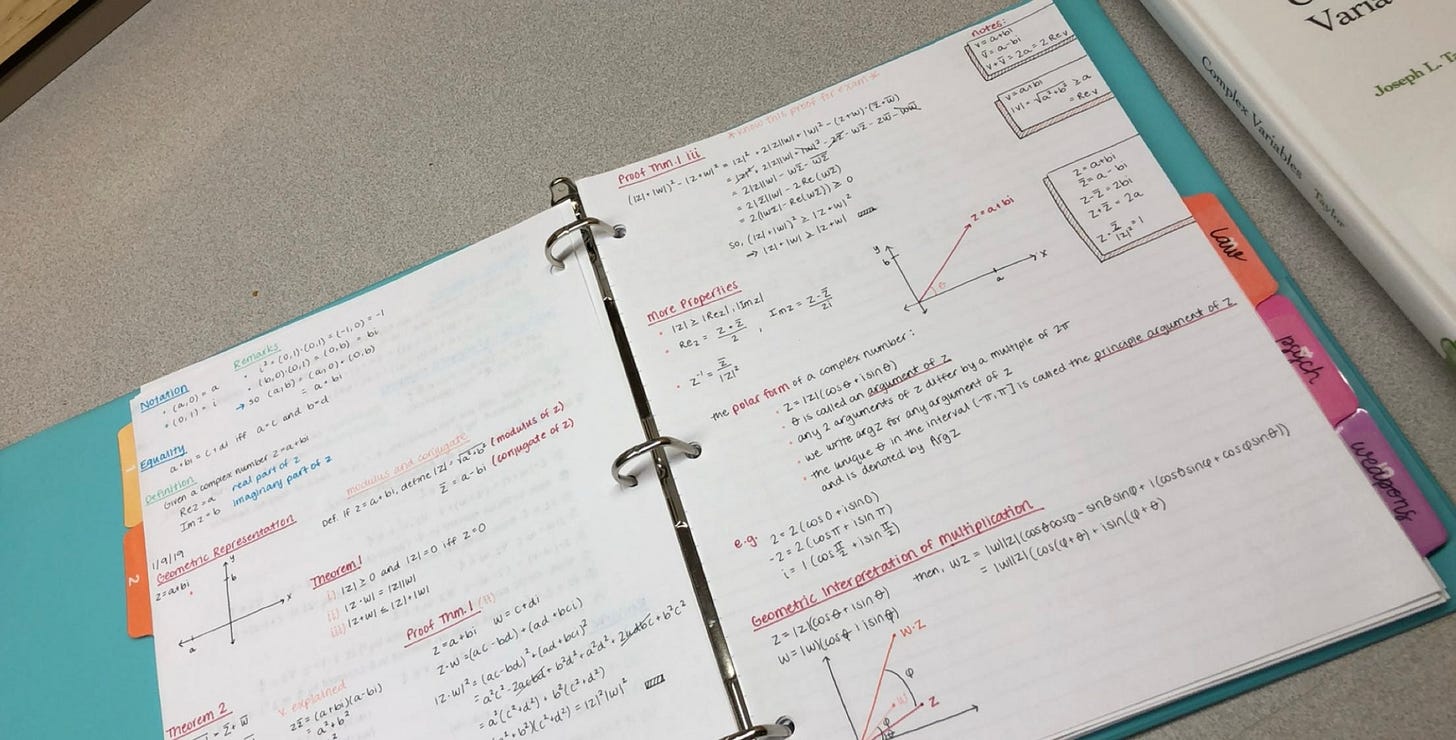 Notation
• (a,0) = a
• (0,1) = i
Remarks
• i² = (0,1)·(0,1) = (-1,0) = -1
• (b,0)·(0,1) = (0,b) = bi
→ so (a,b) = (a,0) + (0,b)
= a+bi
Equality
a+bi = c+di iff a=c and b=d
Definition
Given a complex number z=a+bi
Re z = a real part of z
Im z = b imaginary part of z
modulus and conjugate
Def. if z=a+bi, define |z| = √a²+b² (modulus of z)
z̅ = a-bi (conjugate of z)
1/9/19
Geometric Representation
z=a+bi
y
b
x
a
Theorem 1
i) |z| ≥ 0 and |z|=0 iff z=0
ii) |z·w| = |z||w|
iii) |z+w| ≤ |z|+|w|
Proof Thm. 1 (ii)
z=a+bi w=c+di
z·w = (ac-bd) + (ad+bc)i
|z·w|² = (ac-bd)² + (ad+bc)²
= a²c² - 2acbd + b²d² + a²d² + 2adbc + b²c²
= a²(c²+d²) + b²(c²+d²)
(c²+d²) = |z|²|w|²
Theorem 2
v. explained
zz̅ = (a+bi)(a-bi)
= a²+b²
*know this proof for exam*
Proof Thm. 1 iii
(|z|+|w|)² - |z+w|² = |z|² + 2|z||w| + |w|² - (z+w)·(z̅+w̅)
= 2|z||w| - wz̅ -
= 2|z||w| - 2Re(wz̅)
= 2(|wz̅| - Re(wz̅)) ≥ 0
so, (|z|+|w|)² ≥ |z+w|²
→ |z|+|w| ≥ |z+w|
notes:
v=a+bi
v̅=a-bi
v+v̅ = 2a = 2Re v
v=a+bi
|v| = √a²+b² ≥ a
= Re v
z=a+bi
z̅=a-bi
z-z̅=2bi
z+z̅=2a
z·z̅/|z|²=1
y
b
z=a+bi
θ
a
x
More Properties
• |z| ≥ |Rez|, |Imz|
• Rez = z+z̅/2 , Imz = z-z̅/2i
• z⁻¹ = z̅/|z|²
the polar form of a complex number:
• z = |z|(cosθ + isinθ)
• θ is called an argument of z
• any 2 arguments of z differ by a multiple of 2π
• we write argz for any argument of z
• the unique θ in the interval (-π, π] is called the principle argument of z
and is denoted by Argz
e.g. 2 = 2(cos0 + isin0)
-2 = 2(cosπ + isinπ)
i = 1(cos π/2 + isin π/2)
Geometric Interpretation of multiplication
z = |z|(cosθ + isinθ)
then, wz = |w||z|(cosθcosφ - sinθsinφ + i(cosθsinφ + cosφsinθ))
= |w||z|(cos(φ+θ) + isin(φ+θ)
w·z
φ
w
z
φ
θ
1
2
law
psych
weapons
Complex Variables Taylor
Joseph L. Ta